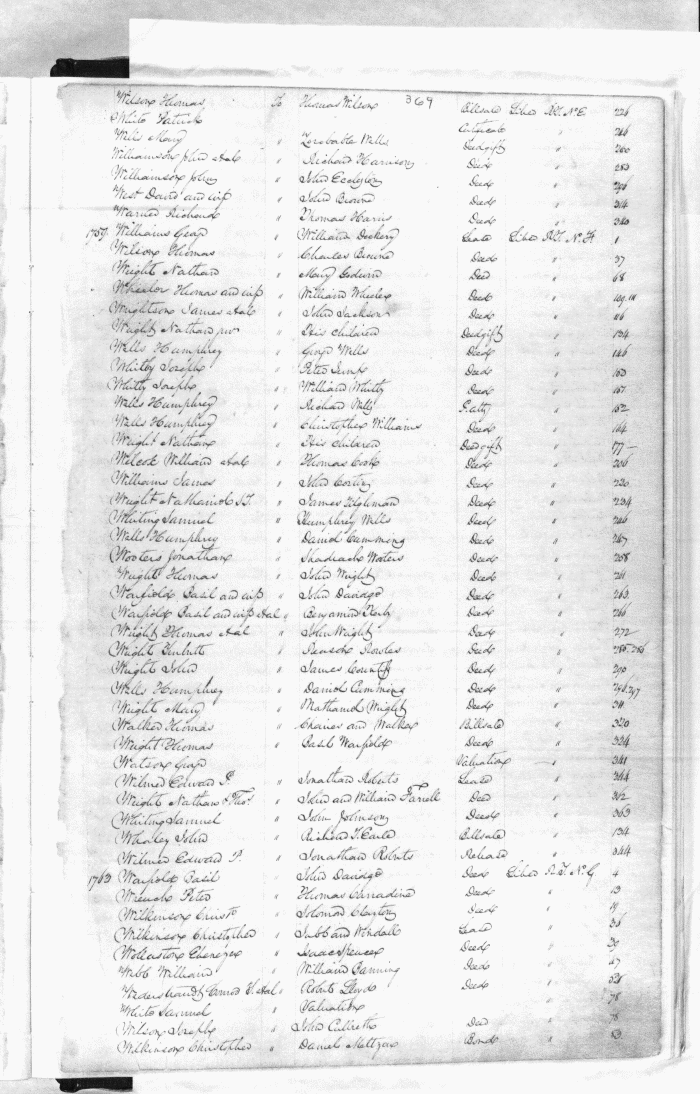 369
Wilson Thomas To Thomas Wilson Billsale Liber R.T. No E. 226
White Patrick Certificate " 246
Wells Mary " Zorobable Wells Deedgift " 260
Williamson John Hal " Richard Harrison Deed " 283
Williamson John " John Eccleston Deed " 296
West David and wife " John Brown Deed " 314
Warner Richard " Thomas Harris Deed " 340
1759 Williams Geor " William Dockery Lease Liber R.T. No F. 1
Wilson Thomas " Charles Browne Deed " 37
Wright Nathan " Mary Godwin Deed " 68
Wheeler Thomas and wife " William Wheeler Deed " 109.111
Wrightson James &al " John Jackson Deed " 116
Wright Nathan junr " His children Deedgift " 134
Wells Humphrey " George Wells Deed " 146
Whitby Joseph " Peter Jump Deed " 163
Whitty Joseph " William Whitty Deed " 167
Wells Humphrey " Richard Wells " 152
Wells Humphrey " Christopher Williams Deed " 164
Wright Nathan " His children Deedgift " 177
Wilcok William &al " Thomas Cook Deed " 206
Williams James " John Deed " 220
Wright Nathaniel S.T. " James Tilghman Deed " 234
Whiting Samuel " Humphrey Wells Deed " 246
Wells Humphrey " Daniel Cumming Deed " 247
Wooters Jonathan " Shadrach Wooters Deed " 258
Wright Thomas " John Wright Deed " 261
Warfield Basil and wife " John Davidge Deed " 263
Warfield Basil and wife &al " Benjamin Deed " 266
Wright Thomas &al " John Wright Deed " 272
Wright Turbutt " Deed " 285.286
Wright John " James Deed " 290
Wells Humphrey " Daniel Cumming Deed " 296.297
Wright Mary " Nathaniel Wright Deed " 311
Walker Thomas " Charles and Walker Billsale " 320
Wright Thomas " Basil Warfield Deed " 324
Watson Geor Valuation " 341
Wilmer Edward P. " Jonathan Roberts Lease " 344
Wright Nathan & Thos " John and William Farrell Deed " 362
Whiting Samuel " John Johnson Deed " 363
Whaley John " Richard T. Earle Billsale " 134
Wilmer Edward P. " Jonathan Roberts Release " 344
1763 Warfield Basil " John Davidge Deed Liber R.T. No G 4
Wrench Peter " Thomas Carradine Deed " 13
Wilkinson Christo " Solomon Clayton Deed " 19
Wilkinson Christopher " Tubb and Windall Lease " 36
Wollaston Ebenezer " Isaac Spencer Deed " 39
Webb William " William Banning Deed " 47
Wederstrandt Conrod T. &al " Robert Lloyd Deed " 521
White Samuel " Valuation " 78
Wilson Joseph " John Culbreth Deed " 78
Wilkinson Christopher " Daniel Bond "